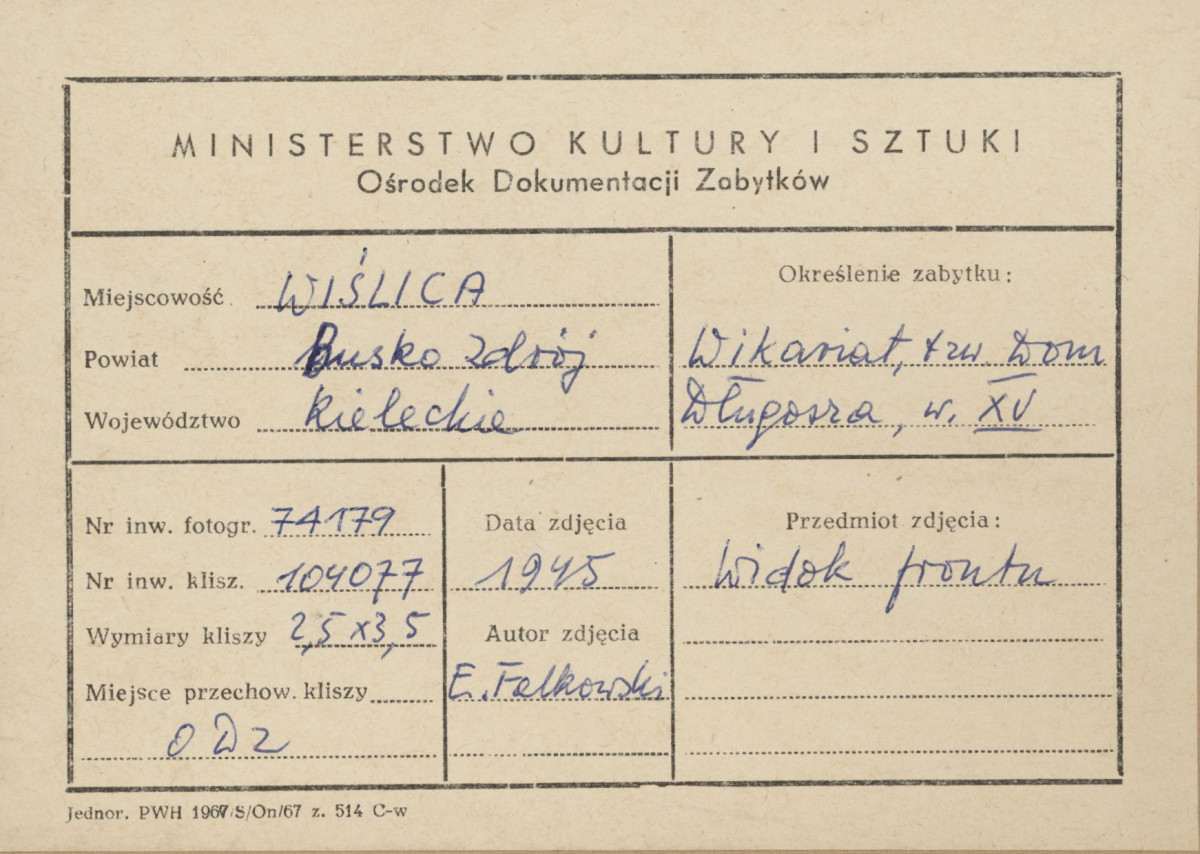 MINISTERSTWO KULTURY I SZTUKI
Ośrodek Dokumentacji Zabytków
Miejscowość WIŚLICA
Powiat Busko Zdrój
Województwo Kieleckie
Określenie zabytku:
Wikariat, tzw. Dom
Długosza, w. XV
Nr inw. fotogr. 74179
Nr inw. klisz. 104077
Wymiary kliszy 2,5 x 3,5
Miejsce przechow. kliszy
ODZ
Data zdjęcia
1945
Autor zdjęcia
E. Falkowski
Przedmiot zdjęcia:
Widok frontu
Jednor. PWH 1967/S/On/67 z. 514 C-w